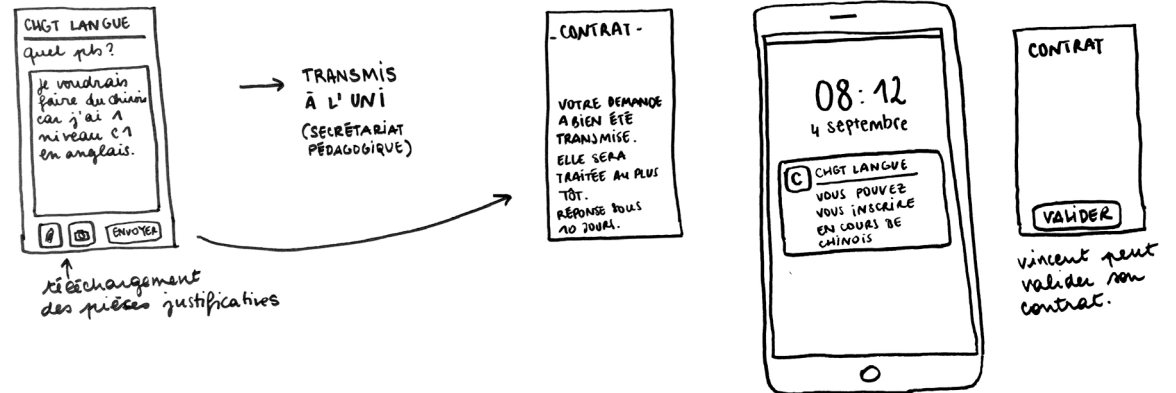 CHGT LANGUE
quel pb?
je voudrais
faire du chinois
car j'ai 1
niveau C1
en anglais.
ENVOYER
téléchargement
des pièces justificatives
→ TRANSMIS
À L'UNI
(SECRÉTARIAT
PÉDAGOGIQUE)
- CONTRAT -
VOTRE DEMANDE
A BIEN ÉTÉ
TRANSMISE.
ELLE SERA
TRAITÉE AU PLUS
TÔT.
RÉPONSE SOUS
10 JOURS.
08:12
4 septembre
C CHGT LANGUE
VOUS POUVEZ
VOUS INSCRIRE
EN COURS DE
CHINOIS
CONTRAT
VALIDER
vincent peut
valider son
contrat.